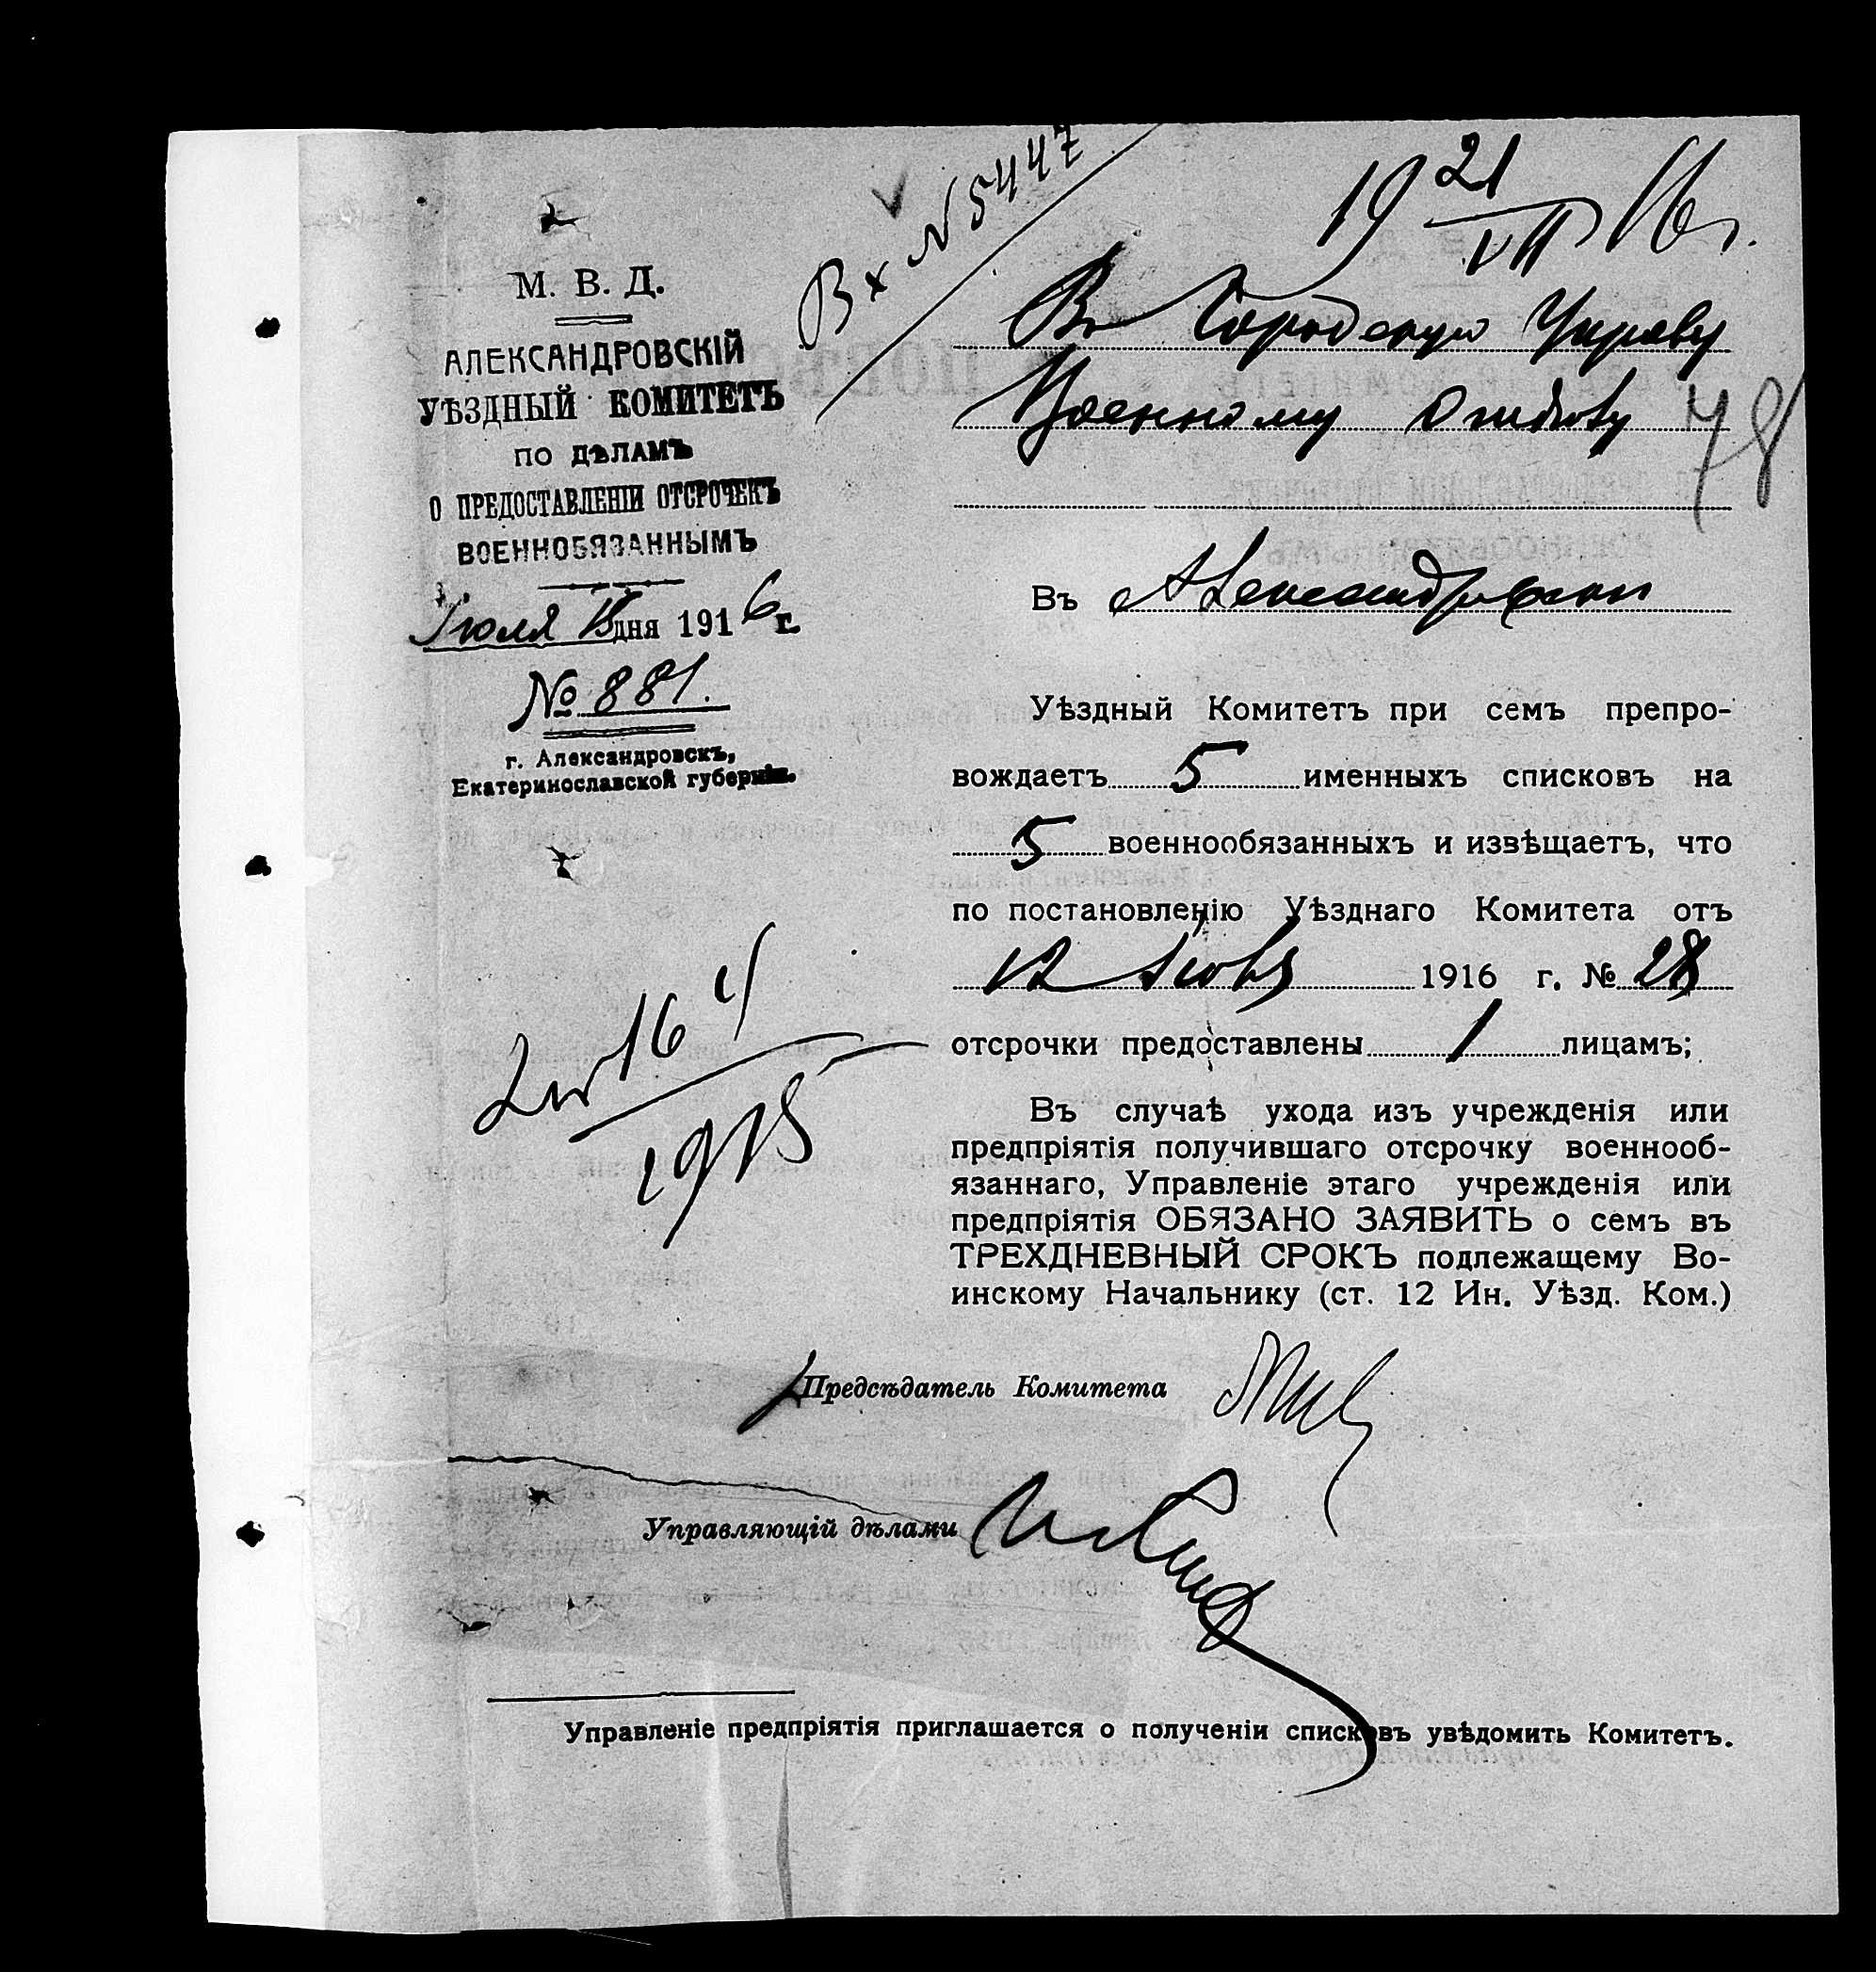 Вх N 5447
19 21/VII 16 г.
М. В. Д.
АЛЕКСАНДРОВСКІЙ
УѢЗДНЫЙ КОМИТЕТЪ
ПО ДѢЛАМЪ
О ПРЕДОСТАВЛЕНІИ ОТСРОЧЕКЪ
ВОЕННОБЯЗАННЫМЪ
Іюля дня 1916 г.
№ 881.
г. Александровскъ,
Екатеринославской губерніи.
В Городскую Управу
Военному Отделу
78
Въ Александровске
Уѣздный Комитетъ при семъ препро-
вождаетъ 5 именныхъ списковъ на
5 военнообязанныхъ и извѣщаетъ, что
по постановленію Уѣзднаго Комитета отъ
12 Іюля 1916 г. № 28
отсрочки предоставлены 1 лицамъ;
164
1915
Въ случаѣ ухода изъ учрежденія или
предпріятія получившаго отсрочку военнооб-
язаннаго, Управленіе этаго учрежденія или
предпріятія ОБЯЗАНО ЗАЯВИТЬ о семъ въ
ТРЕХДНЕВНЫЙ СРОКЪ подлежащему Во-
инскому Начальнику (ст. 12 Ин. Уѣзд. Ком.)
Предсѣдатель Комитета
Управляющій дѣлами
Управленіе предпріятія приглашается о полученіи списковъ увѣдомить Комитетъ.